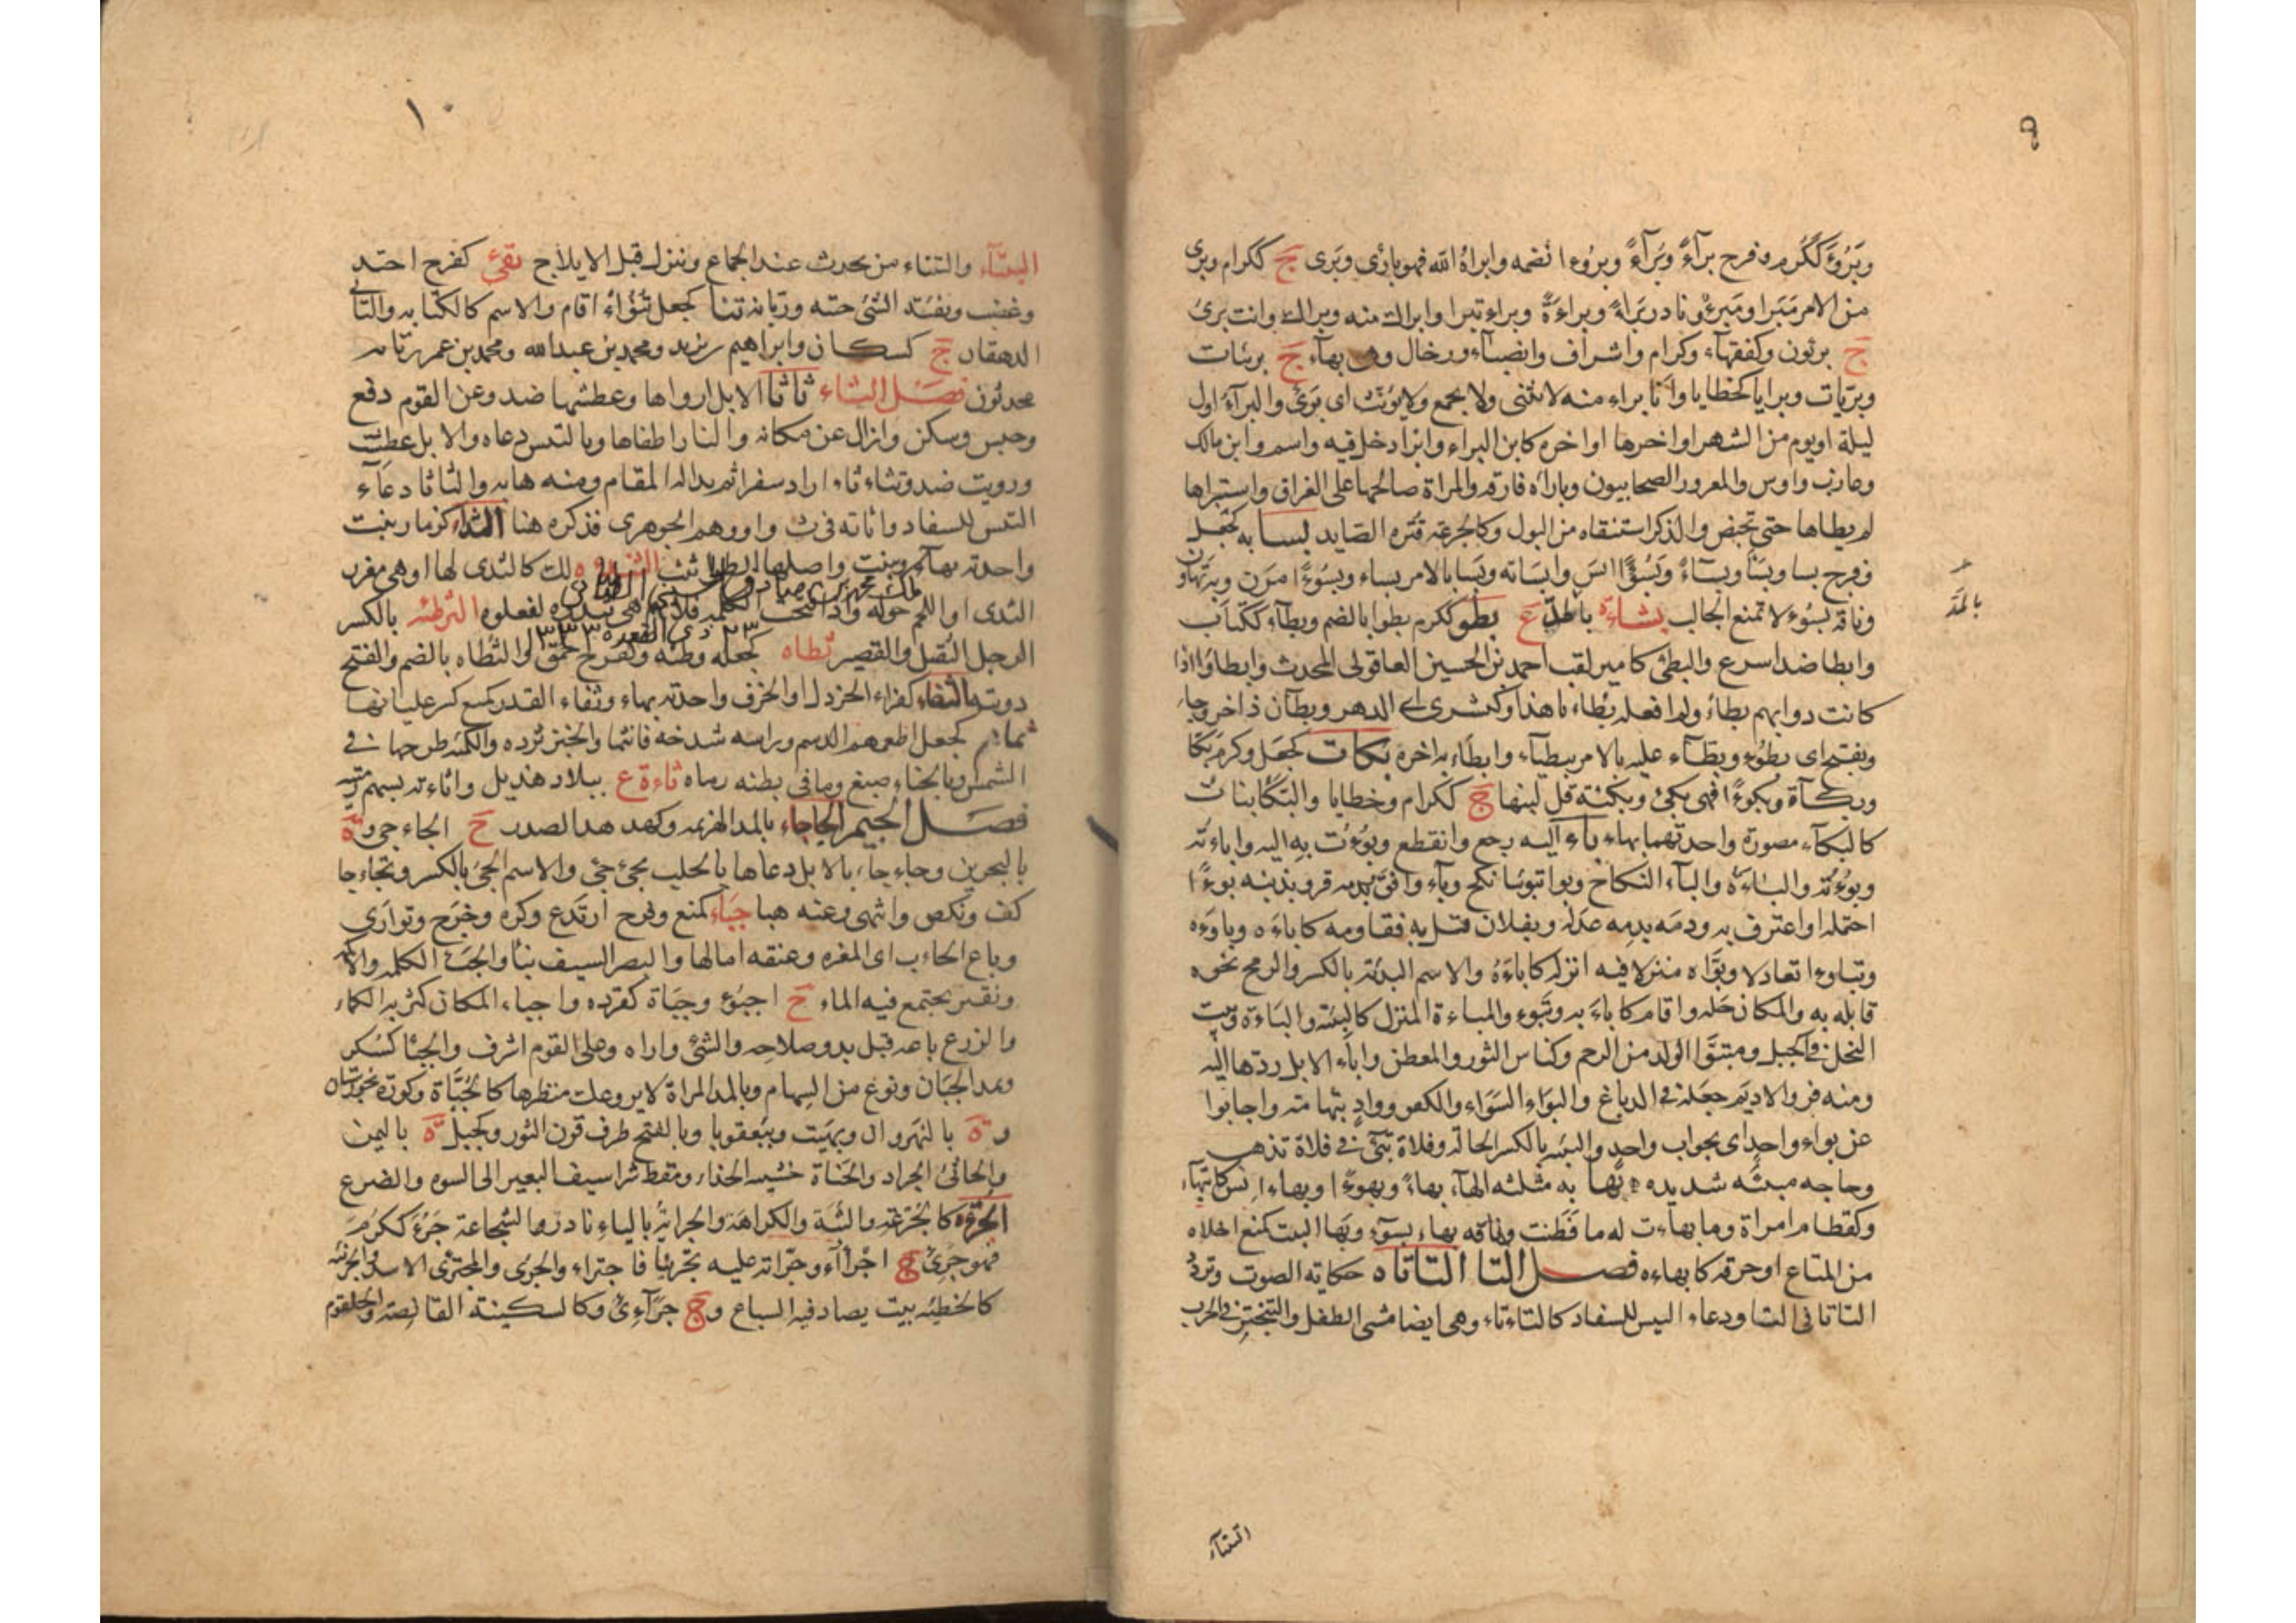 ٩
وبَرُؤَ ككَرُم وفرح برآءً وبُرآءً وبروءا نَقِه وابراهُ الله فهو بارئ وبرى ج ككرام وبرى
من الامر يَبْرا ويَبْرؤ نادر بَراءً وبراءةً وبروءا تبرا وابراك منه وبراك وانت برئ
ج برئون وكفقهاء وكرام واشراف وانصباء ورخال وهى بهاء ج بريئات
وبريّات وبرايا كخطايا وانا براء منه لا يثنى ولا يجمع ولا يؤنث اى برئ والبرآء اول
ليلة او يوم من الشهر او اخرها او اخره كابن البراء وابرا دخل فيه واسم وابن مالك
وعازب واوس والمعرور الصحابيون وباراه فارقه والمراة صالحها على الفراق واستبراها
لم يطاها حتى تحيض والذكر استنقاه من البول وكالجرعة قترة الصايد بسا به كجعل
وفرح بسا وبَسَأ وبسآءً وبُسُؤًا انس وابساته وبسا بالامر بساء وبسوءا مرن وبه تهاون
وناقة بسوء لا تمنع الحالب بشاءة بالمد ع بطؤ ككرم بطوا بالضم وبطآء ككتاب
بالمَدّ
وابطا ضد اسرع والبطئ كامير لقب احمد بن الحسين العاقولى المحدث وابطاوا اذا
كانت دوابهم بطاء ولم افعله بُطاء ناهذا وكبشرى اى الدهر وبطآن ذا خروجا
ويفتح اى بطؤ وبطآء عليه بالامر ببطيآء وابطاء به اخره بكات كجعل وكرم بَكا
وبكاة وبكوءًا فهى بكئ وبكيئة قل لبنها ج ككرام وخطايا والبكا نبات
كالبكآء مصورة واحدتهما بهاء باء اليه رجع وانقطع وبُوءت به اليه واباءته
وبوءته والباءة والبآء النكاح وبوا تبويئا نكح وباء وافق بدمه قر وبذنبه بوءًا
احتمله او اعترف به ودمه بدمه عدله وبفلان قتل به فقاومه كاباءه وباوءه
وتباوءا تعادلا وبوَّاه منزلا فيه انزله كاباءه والاسم البيئة بالكسر والرمح نحوه
قابله به والمكان حله واقام كاباء به وتبوء والمباءة المنزل كالبيئة والباءة وبيت
النحل فى الجبل ومتبوَّا الولد من الرحم وكناس الثور والمعطن واباء الابل ردها اليه
ومنه فر والاديم جعله فى الدباغ والبواء السواء والكفو وواد بتهامة واجابوا
عن بواء واحد اى بجواب واحد والبيئه بالكسر الحالة وفلاة تبئ فى فلاة تذهب
وحاجه مبيئة شديده بها به مثلثه الهآء بهاءً وبهوءًا وبهاءا انس كابتهاء
وكقطام امراة وما بهاءت له ما فطنت وناقه بهاء بسوء وبها البيت كمنع اخلاه
من المتاع او خرقه كابهاءه فصل التا التاتاه حكاية الصوت وتردد
التاتا فى التا ودعاء التيس للسفاد كالتاءتاء وهى ايضا مشى الطفل والتبختر فى الحرب
التيتآء
١٠
التيتآء والتئتاء من يحدث عند الجماع وينزل قبل الايلاج تفئ كفرح احتد
وغضب وتفئة الشئ حينه وزمانه تنا كجعل تنوءًا اقام والاسم كالكتابه والتانئ
الدهقان ج كسكان وابراهيم بن يزيد ومحمد بن عبد الله ومحمد بن عمر بن تانه
محدثون فصل الثاء ثاثا الابل ارواها وعطشها ضد وعن القوم دفع
وحبس وسكن وازال عن مكانه والنار اطفاها وبالتيس دعاه والابل عطشت
ورويت ضد وتثاءثاء اراد سفرا ثم بدا له المقام ومنه هابه والثاثا دعآء
التيس للسفاد واثاته فى ث وا ووهم الجوهرى فذكره هنا الثداء كزنار نبت
واحدته بهآء ينبت واصلها الطراثيث الثندوه لك كالثدى لها او هى مغرز
الثدى او اللحم حوله واذا فتحت الكلمه فلا تهمز هى ثندوه لفعلوه الثرطئه بالكسر
الرجل الثقيل والقصير ثطاه كجعله وطئه وكفرح حمق والثطاه بالضم والفتح
٢٣ ذى القعده ١٣٣٣
دويبه الثفاء كقراء الخردل او الحرف واحدته بهاء وثفاء القدر كمنع كسر غليانها
ثماءهم كجعل اطعمهم الدسم وراسه شدخه فانثما والخبز ثرده والكمئه طرحها فى
الشمس وبالحناء صبغ وما فى بطنه رماه ثاءة ع ببلاد هذيل واثاءته بسهم رميته
فصل الجيم الجاجاء بالمد الهزيمه وكهدهد الصدر ج الجاجى وة
بالبحرين وجاءجاء بالابل دعاها بالحليب بجئ جئ والاسم الجئ بالكسر وتجاءجا
كف ونكص وانتهى وعنه هبا جباء كمنع وفرح ارتدع وكره وخرج وتوارى
وباع الجاب اى المغره وعنقه امالها والبصر السيف نبأ والجبء الكلمه والاكمه
ونقير يجتمع فيه الماء ج اجبؤ وجباة كقرده واجباء المكان كثر به الكماء
والزرع باعه قبل بدو صلاحه والشئ واراه وعلى القوم اشرف والجبا كسكر
ويمد الجبان ونوع من السهام وبالمد المراة لا يروعك منظرها كالجباة وكورة بخوزستان
وة بالنهروان وبهيت وببعقوبا وبالفتح طرف قرن الثور وكجبل ة باليمن
والجابئ الجراد والجباة خشبه الحذاء ومقط شراسيف البعير الى السره والضرع
الجرؤه كالجرعه والثبة والكراهة والجرايه بالياء نادر الشجاعة جرؤ ككرُمَ
فهو جرئ ج اجراآء وجراته عليه تجريئا فاجتراء والجرى والمجترى الاسد والجريئه
كالخطيئه بيت يصاد فيه السباع وج جرآءى وكالسكينة القانصة والحلقوم